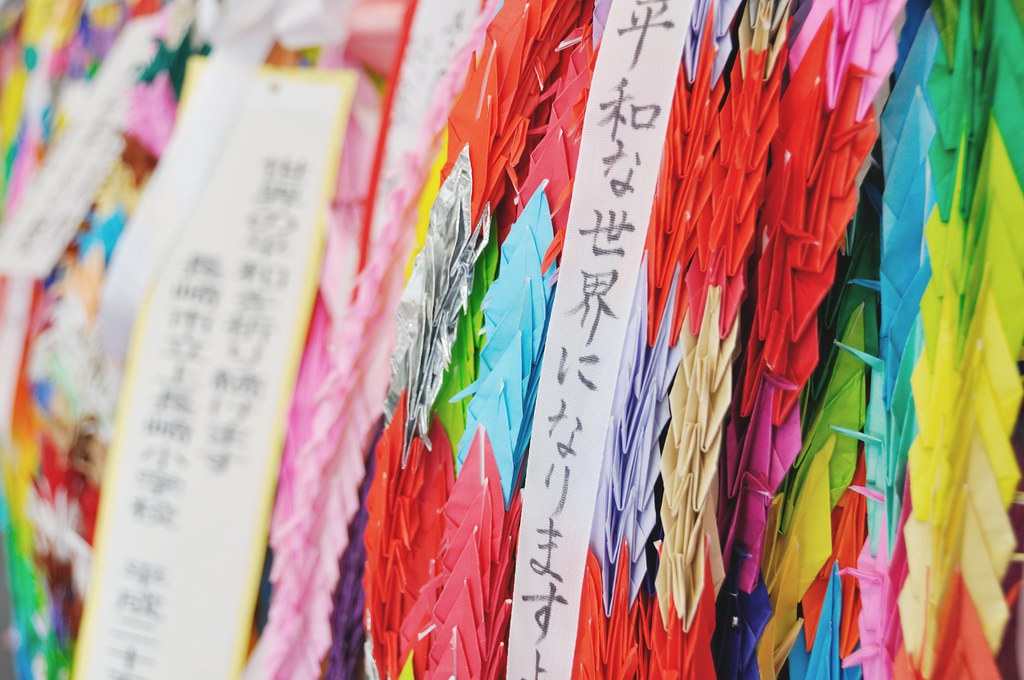 平和な世界になりますよ
世界の平和を祈り続けます
長崎市立上長崎小学校 平成二十